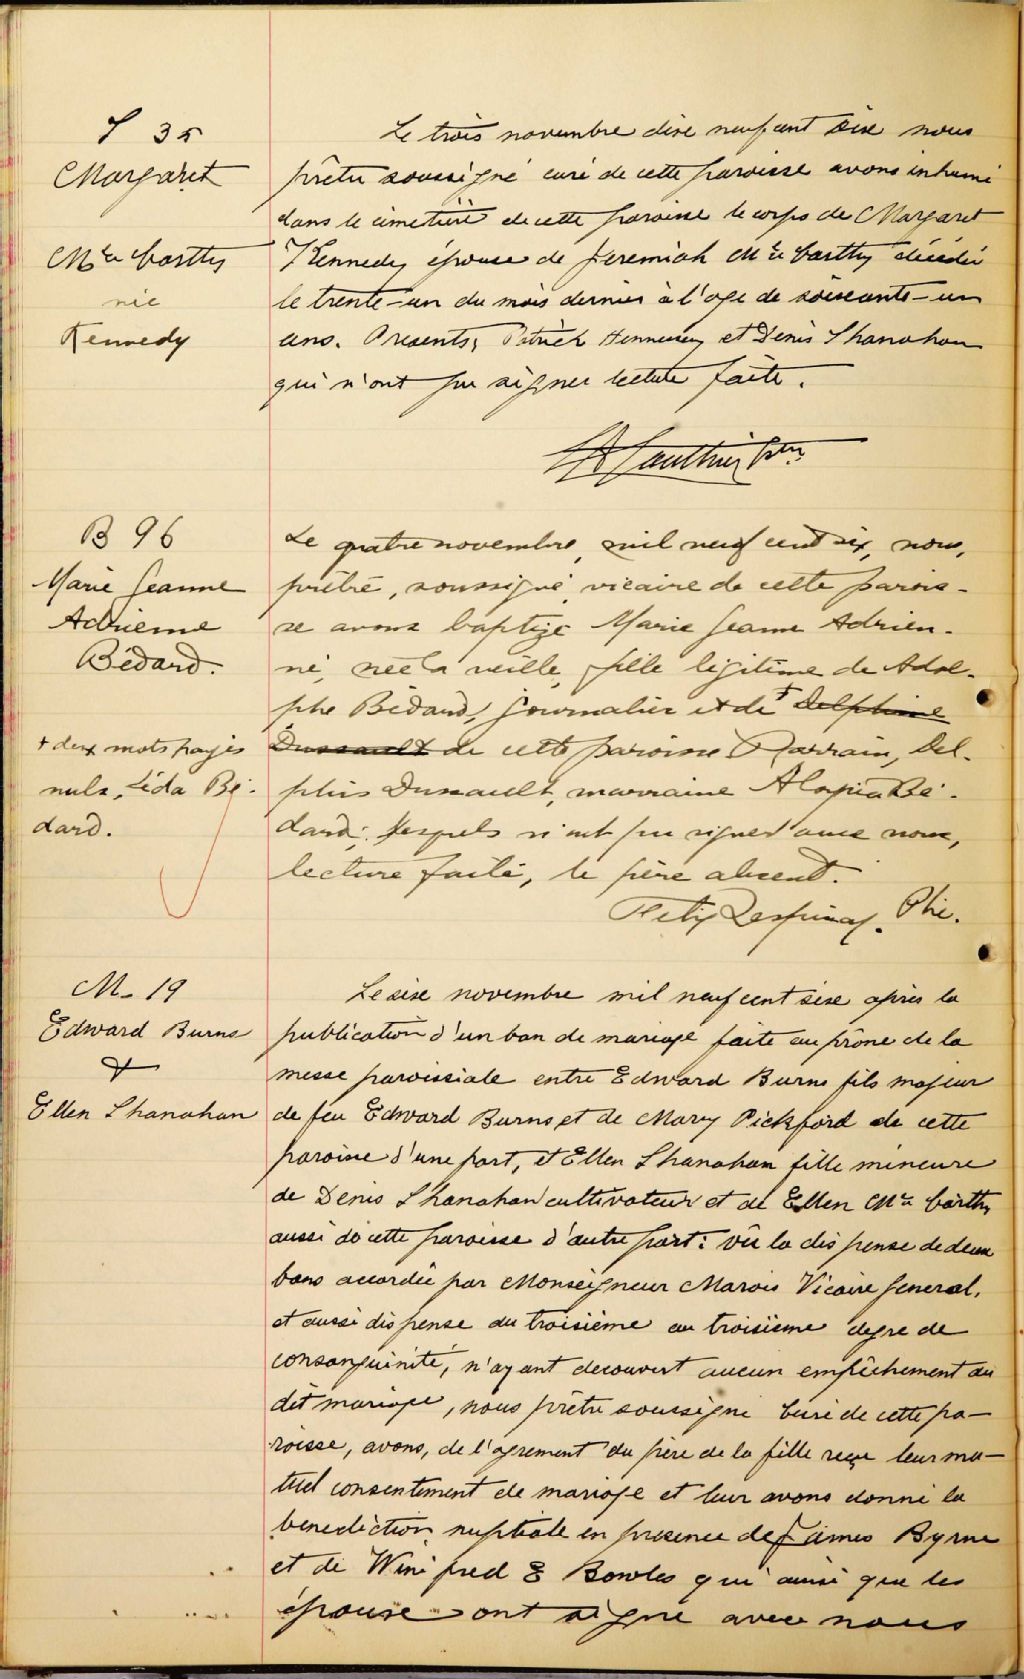 S 35
Margaret
Mc Carthy
née
Kennedy
Le trois novembre dixe neuf cent sixe nous
prêtre soussigné curé de cette paroisse avons inhumé
dans le cimetière de cette paroisse le corps de Margaret
Kennedy épouse de Jeremiah Mc Carthy décédée
le trente-un du mois dernier à l'age de soixante-un
ans. Presents, Patrick Hennessy et Denis Shanahan
qui n'ont pu signer lecture faite.
Gauthier Ptre
B 96
Marie Jeanne
Adrienne
Bédard.
+ deux mots rayés
nuls, Léda Bé-
dard.
Le quatre novembre, mil neuf cent six, nous,
prêtre, soussigné, vicaire de cette parois-
se avons baptizé Marie Jeanne Adrien-
ne, née la veille, fille légitime de Adol-
phe Bédard, journalier et de + Delphine
Dussault de cette paroisse Parrain, Del-
phis Dussault, marraine Bé-
dard; lesquels n'ont pu signer avec nous,
lecture faite, le père absent.
Felix Ptre.
M- 19
Edward Burns
&
Ellen Shanahan
Le sixe novembre mil neuf cent sixe après la
publication d'un ban de mariage faite au prône de la
messe paroissiale entre Edward Burns fils majeur
de feu Edward Burns et de Mary Pickford de cette
paroisse d'une part, et Ellen Shanahan fille mineure
de Denis Shanahan cultivateur et de Ellen Mc Carthy
aussi de cette paroisse d'autre part: vû la dispense de deux
bans accordée par Monseigneur Marois Vicaire General,
et aussi dispense du troisième au troisième degre de
consanguinité, n'ayant decouvert aucun empêchement au
dit mariage, nous prêtre soussigné Curé de cette pa-
roisse, avons, de l'agrement du père de la fille reçu leur mu-
tuel consentement de mariage et leur avons donné la
benediction nuptiale en presence de James Byrne
et de Winifred E Bowles qui ainsi que les
épouse ont signe avec nous